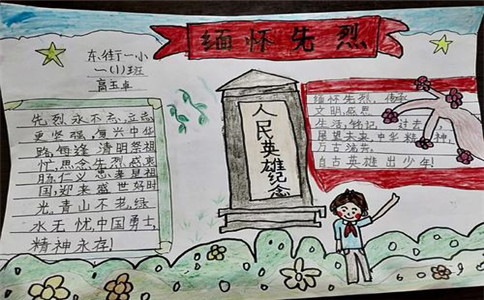 缅怀先烈
东街一小
一(1)班
高玉卓
先烈永不忘,立志
更坚强,复兴中华
路,每逢清明祭祖
忙,思念先烈感衷
肠,仁义忠孝呈祖
国,迎来盛世好时
光,青山不老,绿
水无忧,中国勇士,
精神永存!
人民英雄纪念
缅怀先烈,传承
文明,感恩
生活,铭记过去,
展望未来,中华精神,
万古流芳。
自古英雄出少年!